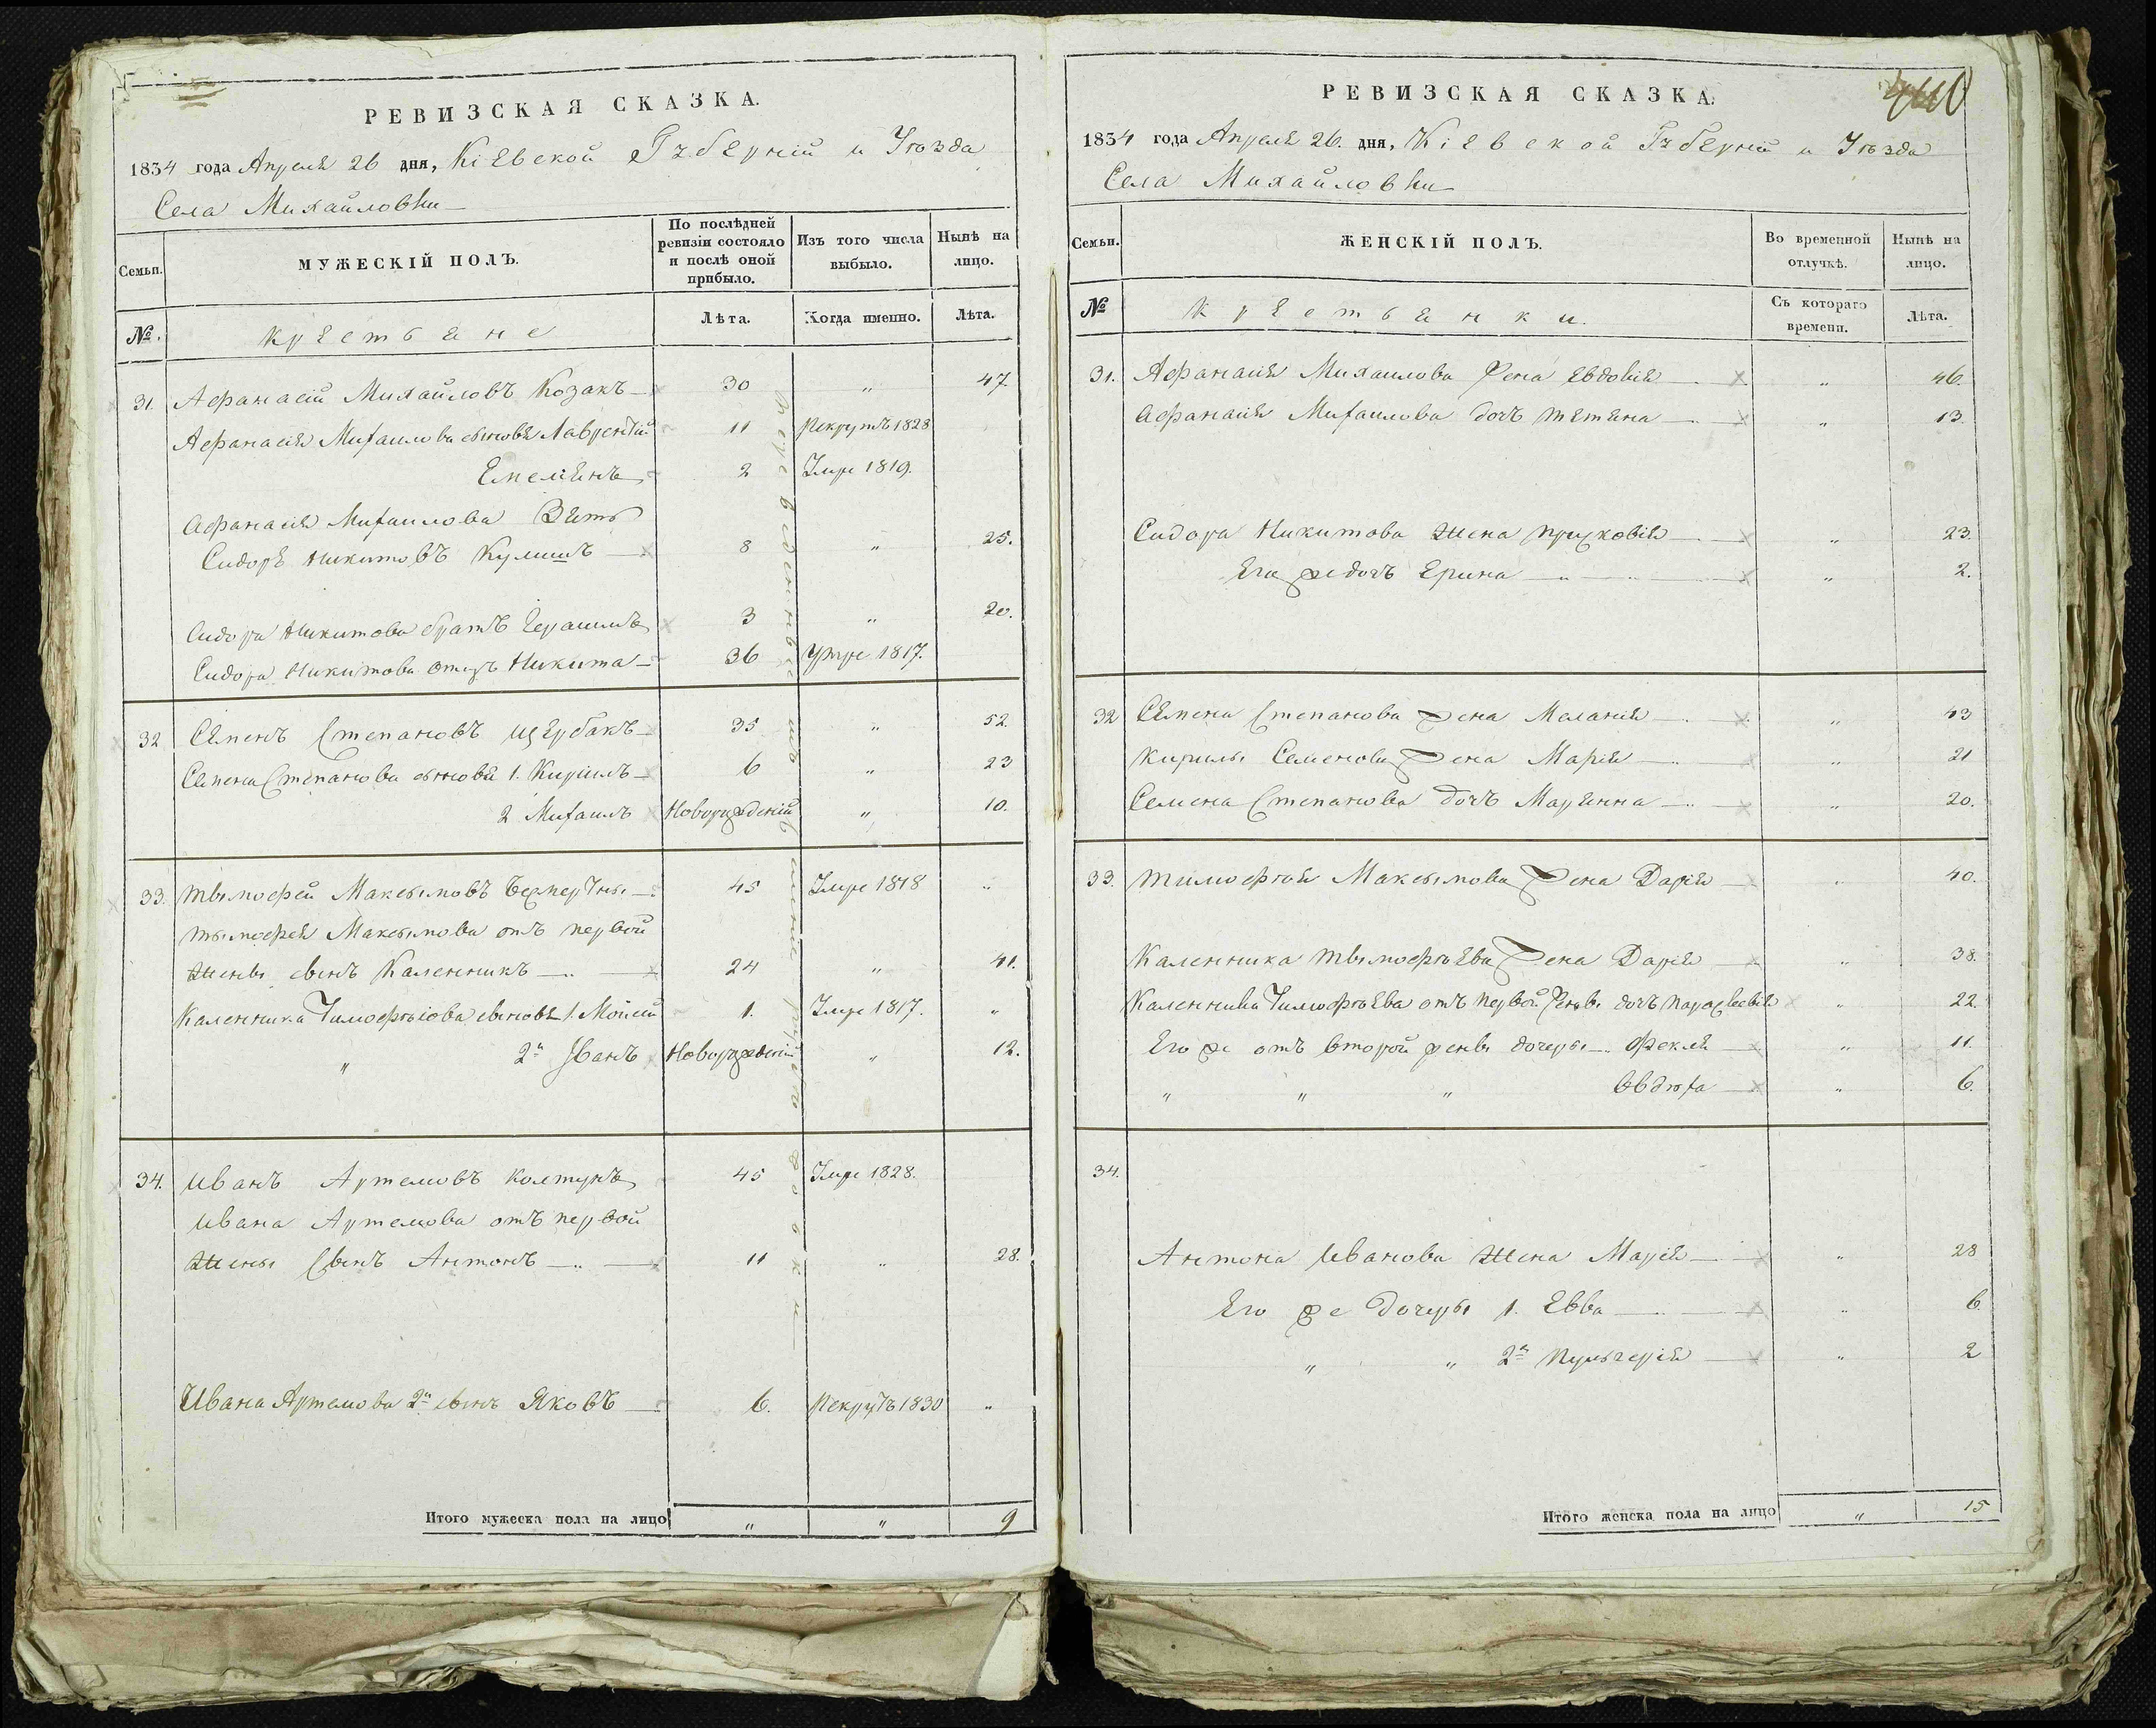 РЕВИЗСКАЯ СКАЗКА.
1834 года Апреля 26 дня, Кіевской Губерніи и Уѣзда
Села Михайловки
Семьи. МУЖЕСКІЙ ПОЛЪ. По послѣдней ревизіи состояло и послѣ оной прибыло. Изъ того числа выбыло. Нынѣ на лицо.
№. крестьяне Лѣта. Когда именно. Лѣта.
31. Афанасій Михайловъ Козакъ 30 " 47.
Афанасія Михаилова сыновя Лаврентій 11 Рекрутъ 1828
Емелянъ 2 Умре 1819.
Афанасія Михаилова Зять
Сидоръ Никитовъ Кулишъ 8 " 25.
Сидора Никитова братъ Герасимъ 3 " 20.
Сидора Никитова отецъ Никита 36 Умре 1817.
32 Семенъ Степановъ щербакъ 35 " 52.
Семена Степанова сыновя 1. Кирилъ 6 " 23
2 Михаилъ Новорожденій " 10.
33. Тымофей Максымовъ 45 Умре 1818 "
тымофея Максымова отъ первой
жены сынъ Каленникъ 24 " 41.
Каленника Тимофѣіова сыновя 1. Мойсій 1. Умре 1817. "
" 2й Іванъ Новорожденій " 12.
34. Иванъ Артемовъ колтунъ 45 Умре 1828.
Ивана Артемова отъ первой
жены Сынъ Антонъ 11 " 28.
Ивана Артемова 2й сынъ Яковъ 6. Рекрутъ 1830 "
Итого мужеска пола на лицо " " 9
РЕВИЗСКАЯ СКАЗКА.
1834 года Апреля 26. дня, Кіевской Губерніи и Уѣзда
Села Михайловки
Семьи. ЖЕНСКІЙ ПОЛЪ. Во временной отлучкѣ. Нынѣ на лицо.
№ крестьянки. Съ котораго времени. Лѣта.
31. Афанасія Михаилова Жена Евдокія " 46.
Афанасія Михаилова дочъ Тетяна " 13.
Сидора Никитова жена " 23.
Его же дочъ Ерина " 2.
32 Семена Степанова жена Меланія " 43
Кирилы Семенова жена Марія " 21
Семена Степанова дочъ Марянна " 20.
33. Тимофѣя Максымова жена Дарія " 40.
Каленника Тымофѣева жена Дарія " 38.
Каленника Тимофѣева отъ первой жены дочъ " 22.
Его же отъ второй жены дочеры Фекля " 11.
" " " Явдоха " 6.
34.
Антона Иванова жена Марія " 28
Его же дочеры 1. Евва " 6.
" " 2я Пульхерія " 2
Итого женска пола на лицо " 15